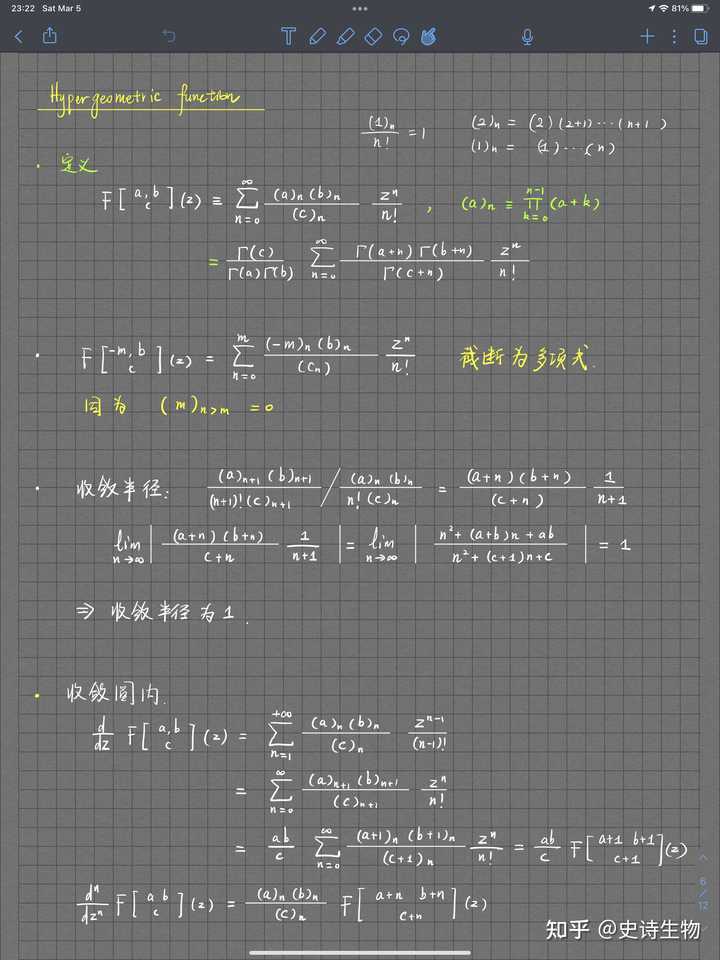 23:22 Sat Mar 5 81%
Hypergeometric function
(1)ₙ/n! = 1 (2)ₙ = (2)(2+1)⋯(n+1)
(1)ₙ = (1)⋯(n)
· 定义
F[a, b; c](z) ≡ ∑_{n=0}^{∞} (a)ₙ(b)ₙ/(c)ₙ zⁿ/n! , (a)ₙ ≡ ∏_{k=0}^{n-1}(a+k)
= Γ(c)/(Γ(a)Γ(b)) ∑_{n=0}^{∞} Γ(a+n)Γ(b+n)/Γ(c+n) zⁿ/n!
· F[-m, b; c](z) = ∑_{n=0}^{m} (-m)ₙ(b)ₙ/(cₙ) zⁿ/n! 截断为多项式.
因为 (m)_{n>m} = 0
· 收敛半径: (a)_{n+1}(b)_{n+1}/((n+1)!(c)_{n+1}) / (a)ₙ(b)ₙ/(n!(c)ₙ) = (a+n)(b+n)/(c+n) 1/(n+1)
lim_{n→∞} | (a+n)(b+n)/(c+n) 1/(n+1) | = lim_{n→∞} | (n²+(a+b)n+ab)/(n²+(c+1)n+c) | = 1
⇒ 收敛半径为1.
· 收敛圆内.
d/dz F[a, b; c](z) = ∑_{n=1}^{+∞} (a)ₙ(b)ₙ/(c)ₙ z^{n-1}/(n-1)!
= ∑_{n=0}^{∞} (a)_{n+1}(b)_{n+1}/(c)_{n+1} zⁿ/n!
= ab/c ∑_{n=0}^{∞} (a+1)ₙ(b+1)ₙ/(c+1)ₙ zⁿ/n! = ab/c F[a+1 b+1; c+1](z)
dⁿ/dzⁿ F[a b; c](z) = (a)ₙ(b)ₙ/(c)ₙ F[a+n b+n; c+n](z)
6/12
知乎 @史诗生物